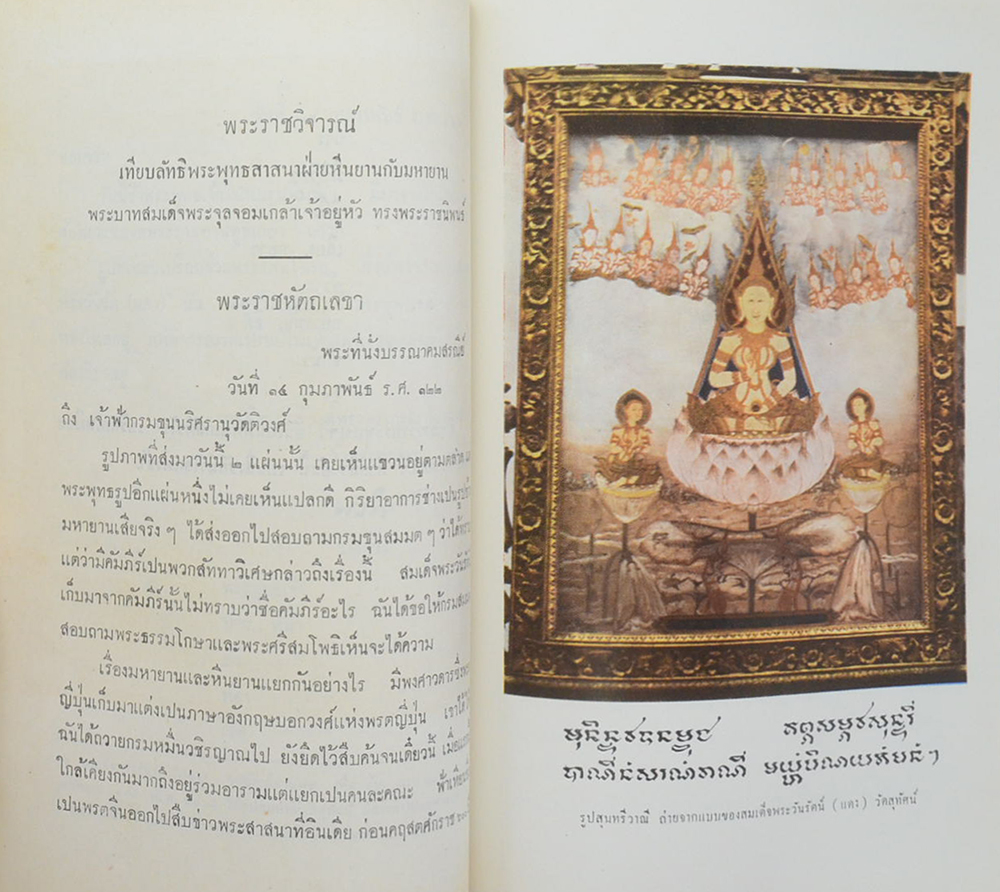 พระราชวิจารณ์
เทียบลัทธิพระพุทธสาสนาฝ่ายหีนยานกับมหายาน
พระบาทสมเด็จพระจุลจอมเกล้าเจ้าอยู่หัว ทรงพระราชนิพนธ์
พระราชหัตถเลขา
พระที่นั่งบรรณาคมสรณีย์
วันที่ ๑๔ กุมภาพันธ์ ร.ศ. ๑๒๒
ถึง เจ้าฟ้ากรมขุนนริศรานุวัดติวงศ์
รูปภาพที่ส่งมาวันนี้ ๒ แผ่นนั้น เคยเห็นแขวนอยู่ตาม
พระพุทธรูปอีกแผ่นหนึ่งไม่เคยเห็นแปลกดี กิริยาอาการช่างเป็น
มหายานเสียจริง ๆ ได้ส่งออกไปสอบถามกรมขุนสมมต ๆ ว่า
แต่ว่ามีคัมภีร์เป็นพวกสัททาวิเศษกล่าวถึงเรื่องนี้ สมเด็จพระวันรัต
เก็บมาจากคัมภีร์นั้นไม่ทราบว่าชื่อคัมภีร์อะไร ฉันได้ขอให้กรม
สอบถามพระธรรมโกษาและพระศรีสมโพธิเห็นจะได้ความ
เรื่องมหายานและหีนยานแยกกันอย่างไร มีพงศาวดารซึ่ง
ญี่ปุ่นเก็บมาแต่งเป็นภาษาอังกฤษบอกวงศ์แห่งพรตญี่ปุ่น เขาให้
ฉันได้ถวายกรมหมื่นวชิรญาณไป ยังยึดไว้สืบค้นจนเดี๋ยวนี้
ใกล้เคียงกันมากถึงอยู่ร่วมอารามแต่แยกเป็นคนละคณะ
เป็นพรตจีนออกไปสืบข่าวพระสาสนาที่อินเดีย ก่อนคฤสตศักราช
รูปสุนทรีวาณี ถ่ายจากแบบของสมเด็จพระวันรัตน์ (แดง) วัดสุทัศน์